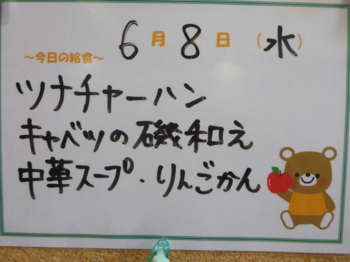 6月8日(水)
～今日の給食～
ツナチャーハン
キャベツの磯和え
中華スープ・りんごかん